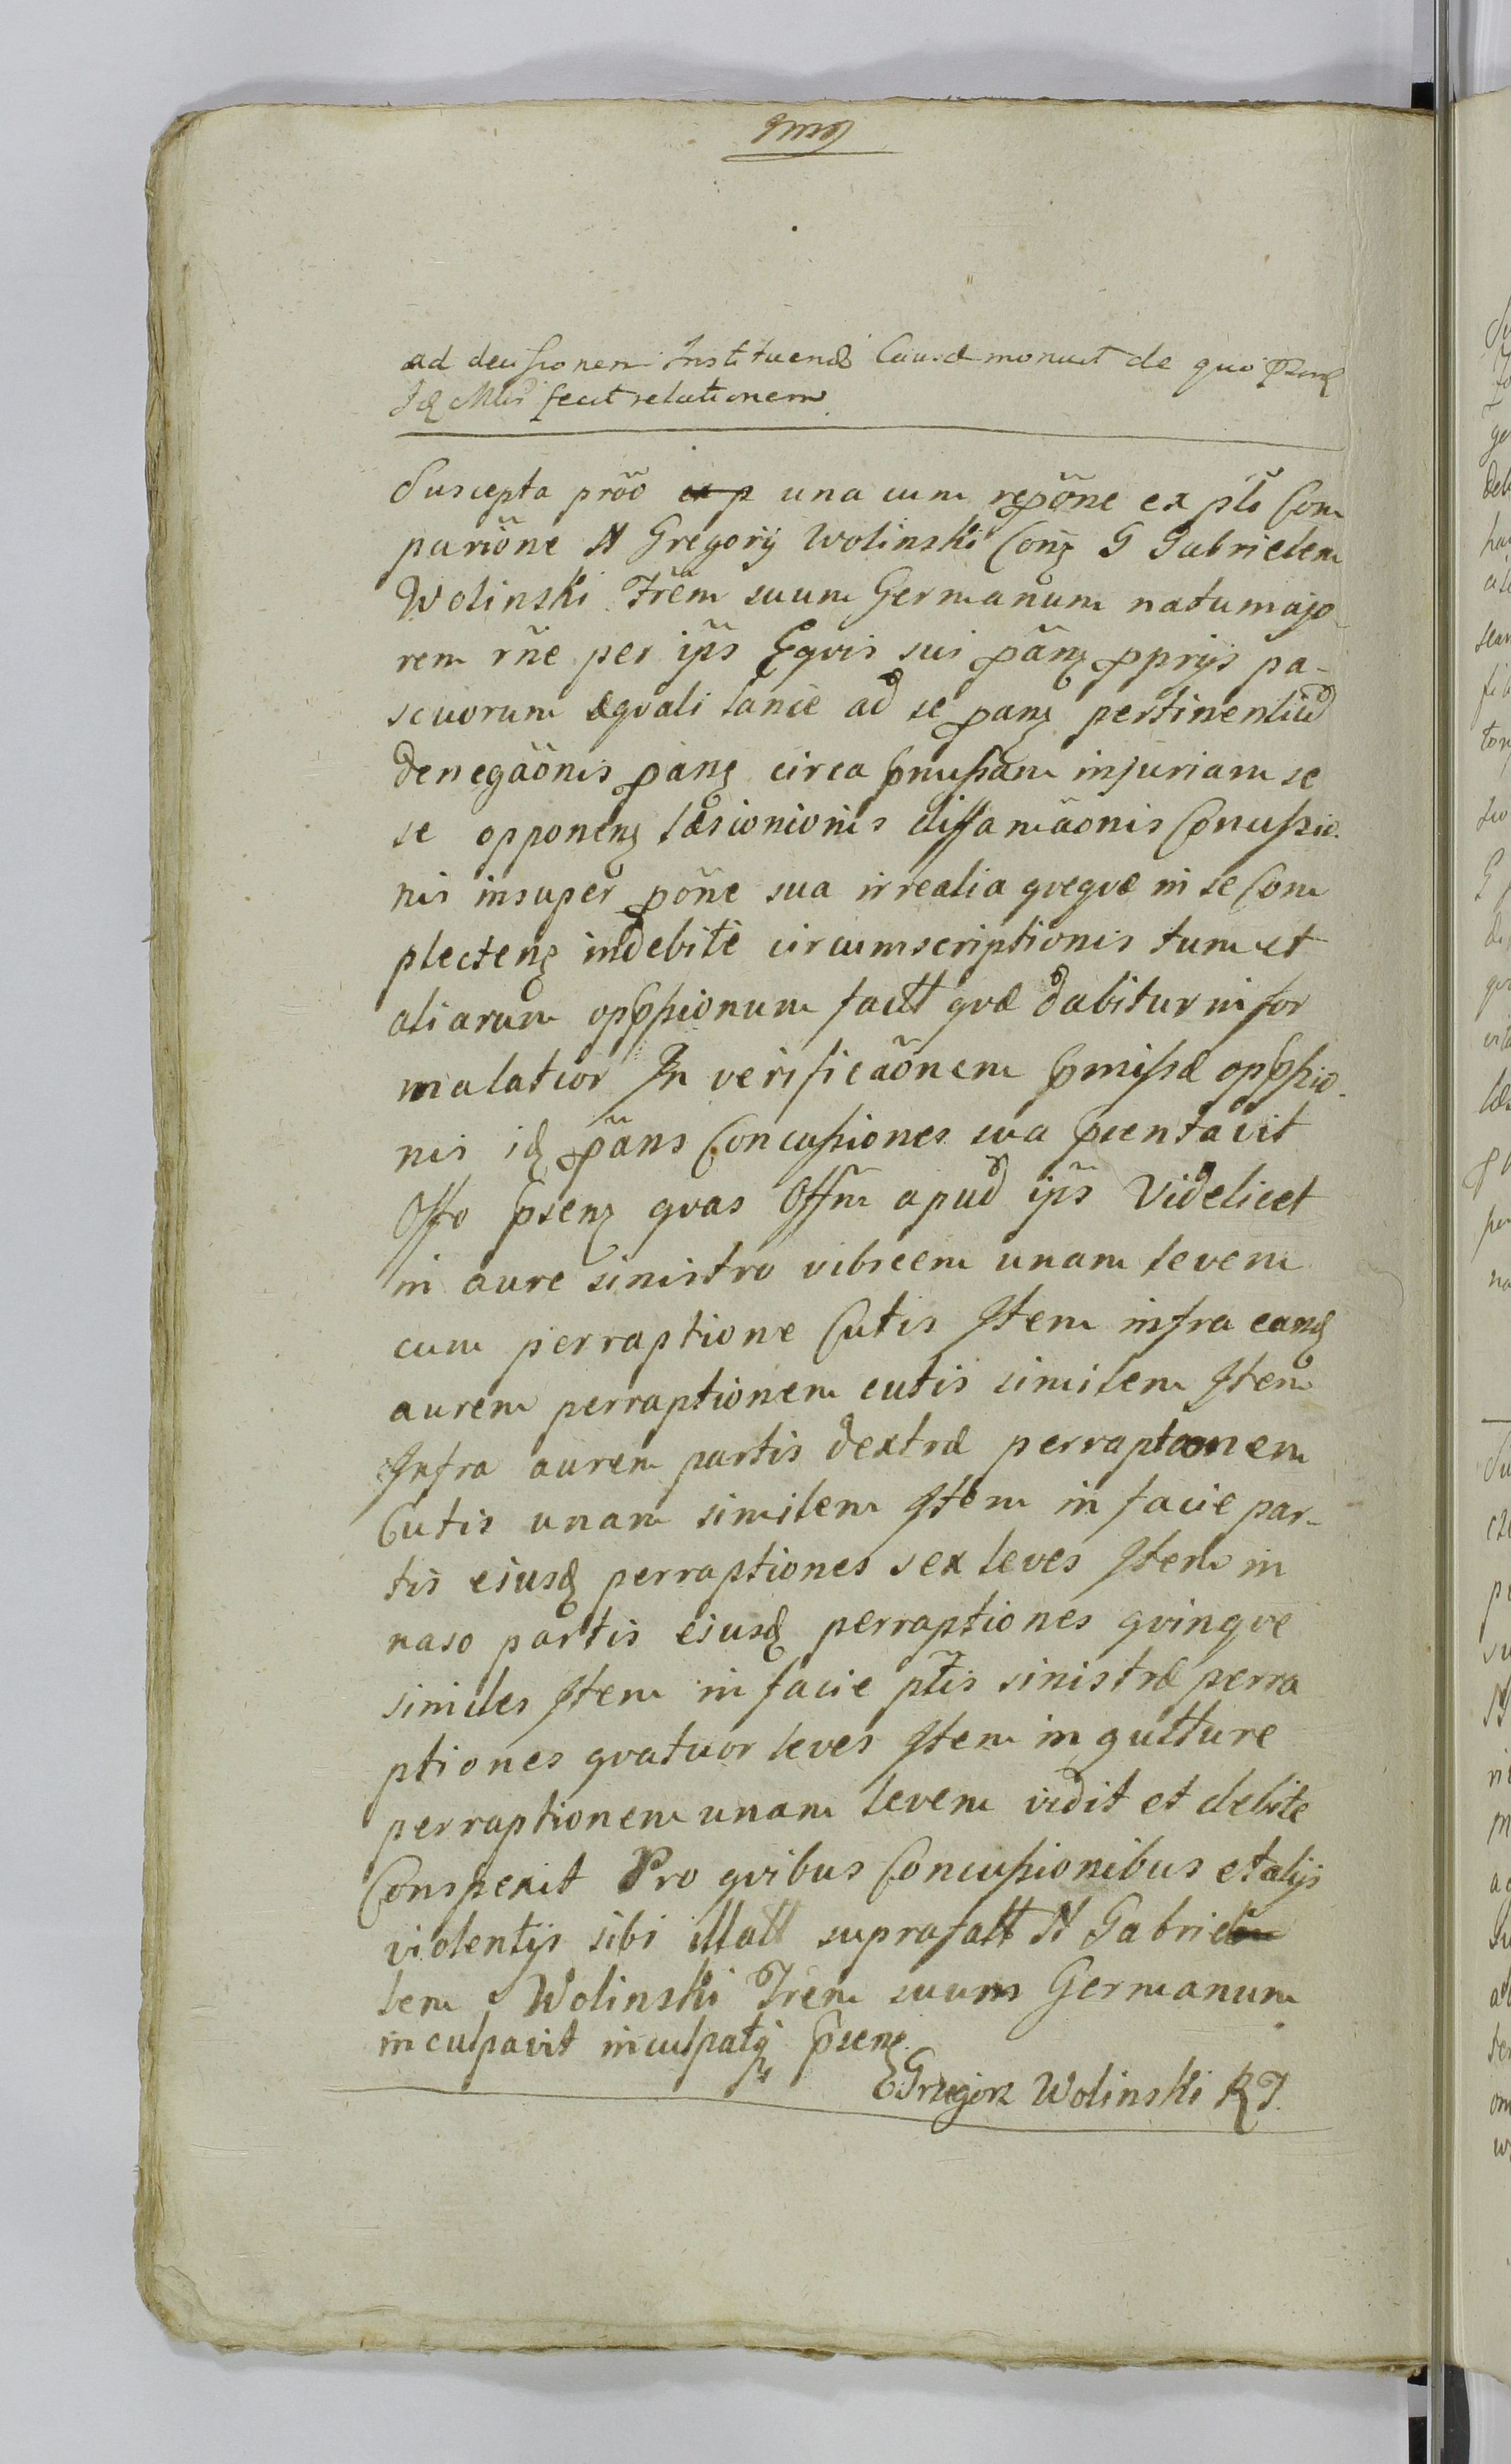 ad decisionem Instituendæ Causæ monuit de quo
Id Mlis fecit relationem
Suscepta prõõ ex p una cum repõne ex pti Com
pariõne N Gregorij Wolinski Conq G Gabrielem
Wolinski Frẽm suum Germanum natu majo
rem rñe per ips Eqvis sui pãnz pprijs pa-
scuorum æqvali lance ad se panz pertinentiũ
denegãonis panz circa pmissam injuriam se
se opponenz læsionionis diffamãonis Concussio
nis insuper põne sua irrealia qveqvæ in se Com
plectenz indebite circumscriptionis tum et
aliarum oppssionum factt qvæ dabitur in for
malatior In verificãonem pmissæ oppssio
nis idz pãns Concussiones sua psentavit
Offo psenz qvas Offm apud ips Videlicet
in aure sinistro vibicem unam levem
cum perraptione Cutis Item infra eandz
aurem perraptionem cutis similem Item
Infra aurem partis dextræ perraptionem
Cutis unam similem Item in facie par-
tis ejusdz perraptiones sex leves Item in
naso partis ejusdz perraptiones qvinqve
similes Item in facie ptis sinistræ perra
ptiones qvatuor leves Item in gutture
perraptionem unam levem vidit et debite
Conspexit Pro qvibus Concussionibus et alijs
violentijs sibi illatt suprafatt N Gabrie
lem Wolinski Frem suum Germanum
inculpavit inculpatq psenz
Grzegorz Wolinski